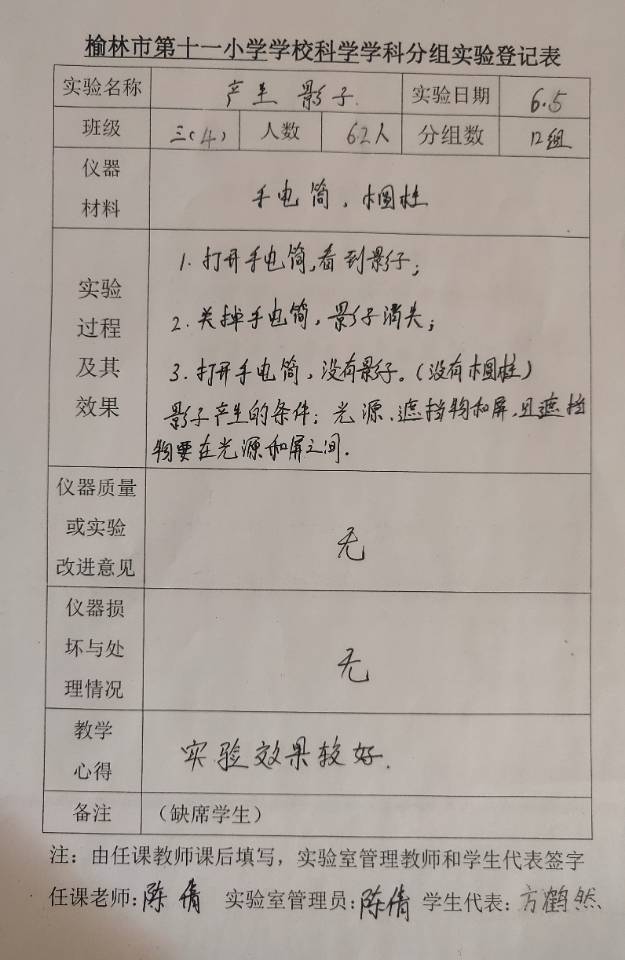 榆林市第十一小学学校科学学科分组实验登记表
实验名称 产生影子. 实验日期 6.5
班级 三(4) 人数 62人 分组数 12组
仪器
材料
手电筒、圆柱
实验
过程
及其
效果
1. 打开手电筒,看到影子;
2. 关掉手电筒,影子消失;
3. 打开手电筒,没有影子。(没有圆柱)
影子产生的条件:光源、遮挡物和屏,且遮挡
物要在光源和屏之间.
仪器质量
或实验
改进意见
无
仪器损
坏与处
理情况
无
教学
心得
实验效果较好.
备注 (缺席学生)
注:由任课教师课后填写,实验室管理教师和学生代表签字
任课老师:陈倩 实验室管理员:陈倩 学生代表:方鹤然